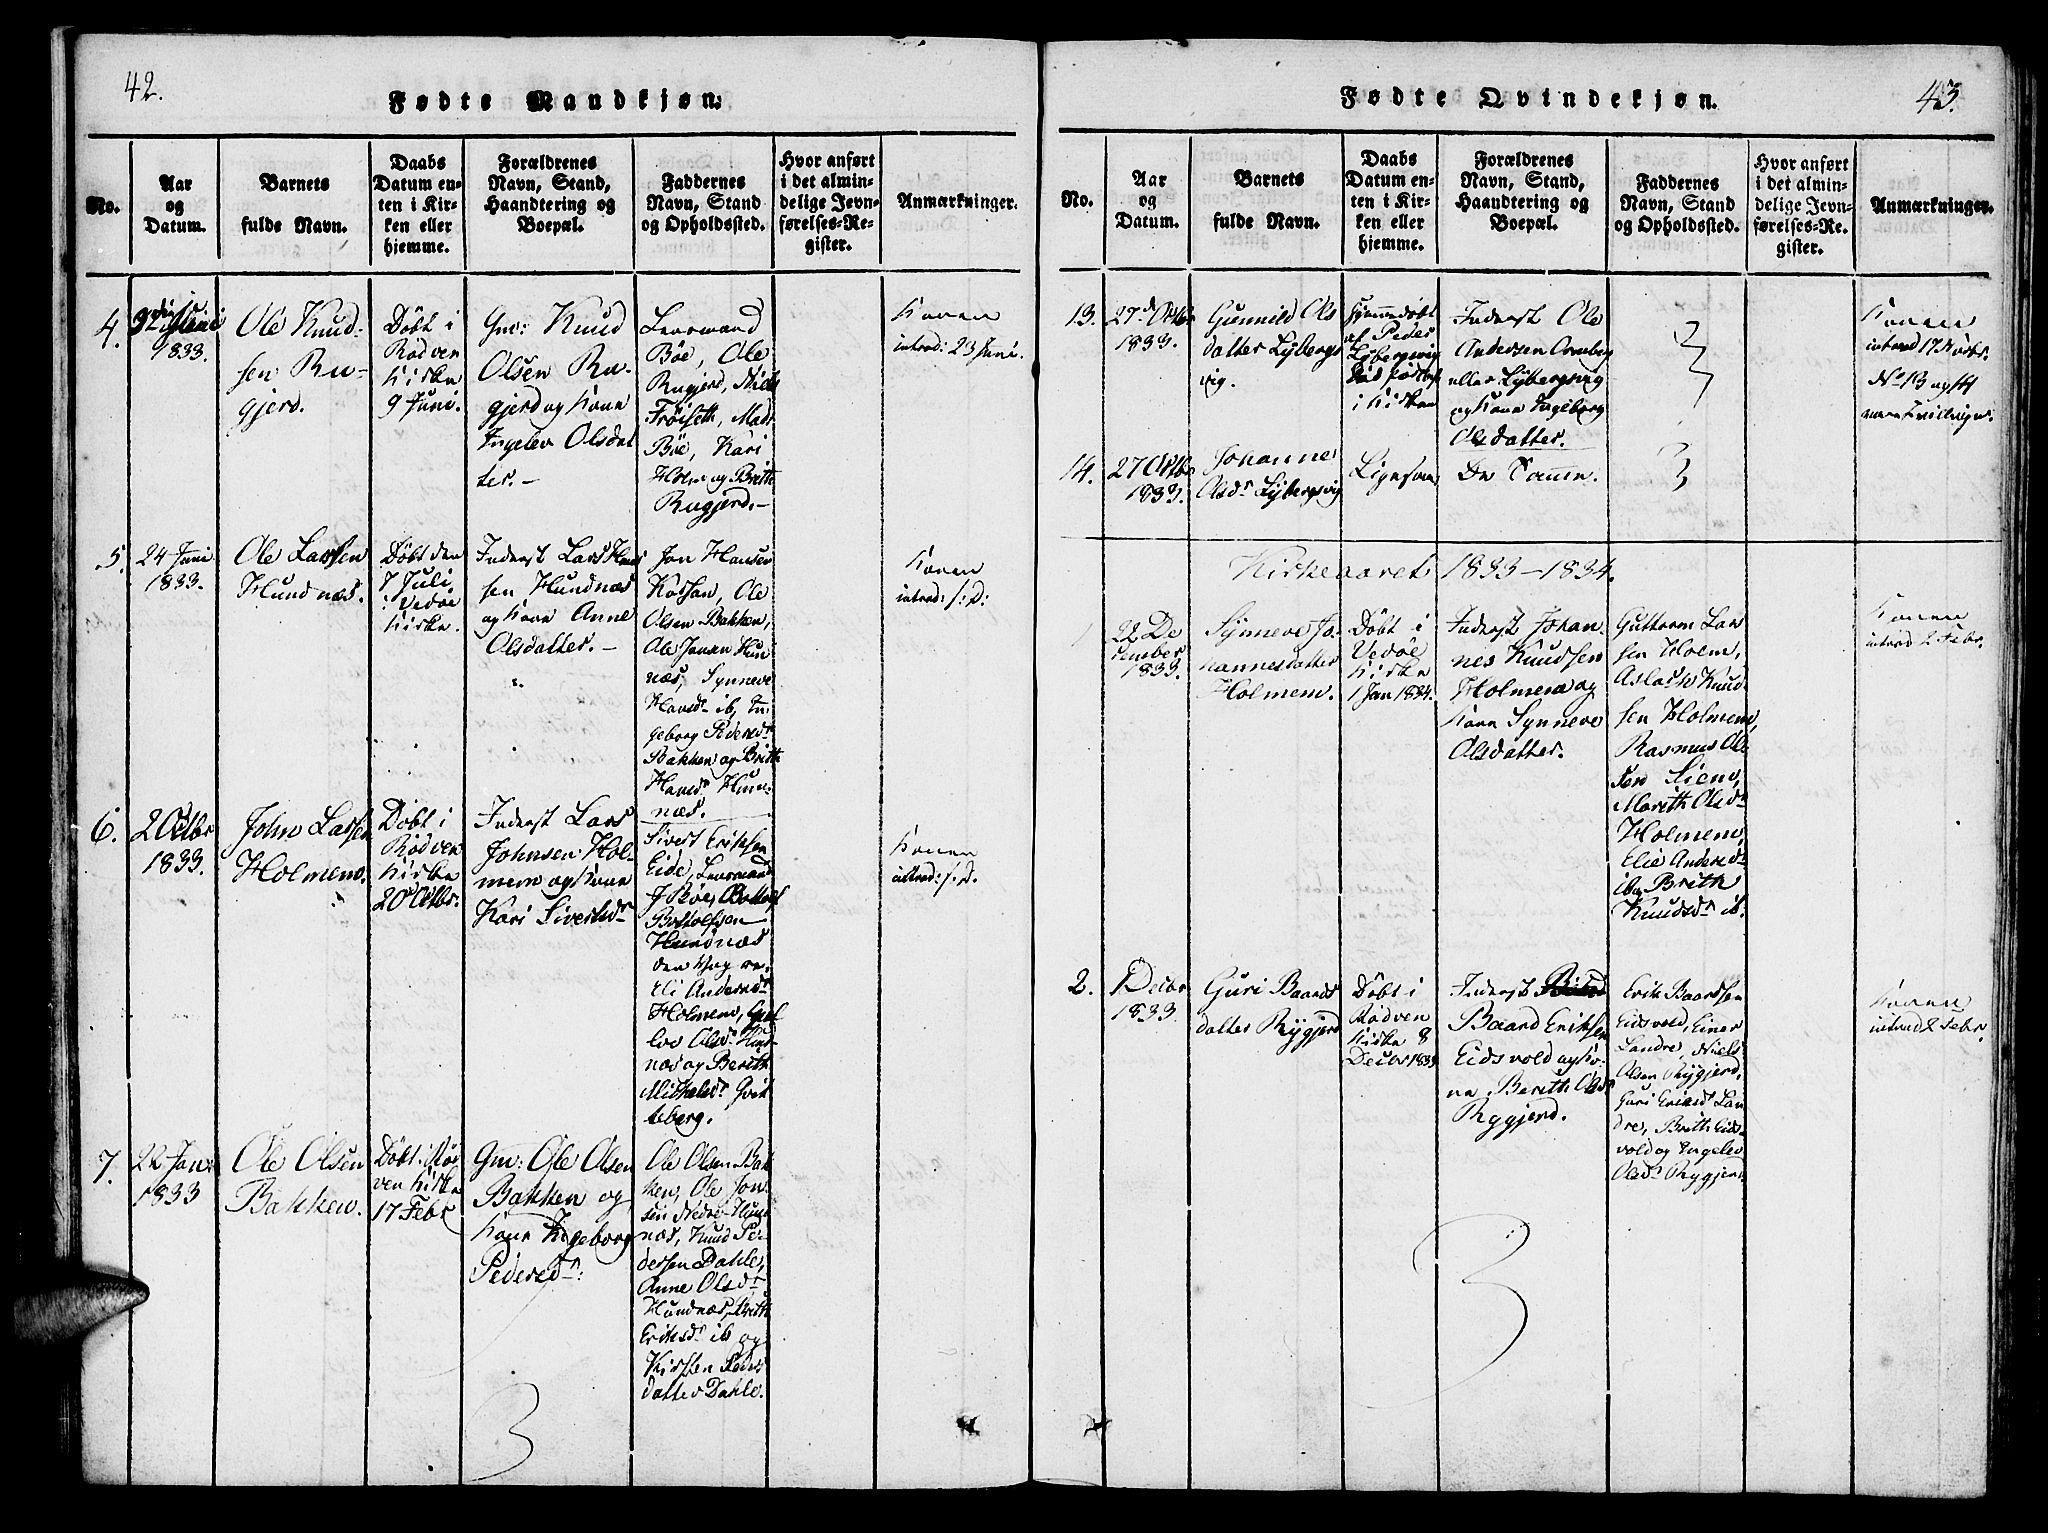 42.
Fødte Mandkjøn.
No.
Aar
og
Datum.
Barnets
fulde Navn.
Daabs
Datum en-
ten i Kir-
ken eller
hjemme.
Forældrenes
Navn, Stand,
Haandtering og
Boepæl.
Faddernes
Navn, Stand
og Opholdssted.
Hvor anført
i det almin-
delige Jevn-
førelses-Re-
gister.
Anmærkninger.
4.
Juni
1833.
Ole Knud-
sen Ru-
gjerd.
Døbt i
Rødven
Kirke
9 Juni.
Gm: Knud
Olsen Ru-
gjerd og Kone
Ingelev Olsdat
ter.-
Lensmand
Böe, Ole
Rugjerd, Niels
Fröiseth, Mad.
Böe, Kari
Holm og Brith
Rugjerd.-
Konen
introd: 23 Juni.
5.
24 Juni
1833.
Ole Larsen
Hundnæs.
Døbt den
7 Juli
i Vedöe
Kirke.
Inderst Lars Hans
sen Hundnæs
og Kone Anne
Olsdatter.-
Jon Hansen
Ole
Olsen Bakken,
Ole Jonsen Hun
næs, Synneve
Hansdr ib, In
geborg Pedersdr
Bakken og Brith
Hansdr Hund-
næs.
Konen
introd: s: D:
6.
2 Octbr
1833.
John Larsen
Holmem.
Døbt i
Rødven
Kirke
20 Octbr.
Inderst Lars
Johnsen Hol-
mem og Kone
Kari Sivertsdr
Sivert Eriksen
Eide, Lensmand
J Böe, Bottolf
Bottolfsen
Hundnæs
den
Eli Andersdr
Holmem,
Olsdr Hund
næs og Berith
Mikkelsdr
teberg.
Konen
introd: s: D.
7.
22 Jan:
1833
Ole Olsen
Bakken.
Døbt i Röd
ven Kirke
17 Febr
Gm: Ole Olsen
Bakken og
Kone Ingeborg
Pedersdr:
Ole Olsen Bak
ken, Ole Jon
sen Nedre-Hund
næs, Knud Pe-
dersen Dahle,
Anne Olsdr
Hundnæs, Brith
Eriksdr ib og
Kirsten Peders
datter Dahle.
43.
Fødte Qvindekjøn.
No.
Aar
og
Datum.
Barnets
fulde Navn.
Daabs
Datum en-
ten i Kir-
ken eller
hjemme.
Forældrenes
Navn, Stand,
Haandtering og
Boepæl.
Faddernes
Navn, Stand
og Opholdssted.
Hvor anført
i det almin-
delige Jevn-
førelses-Re-
gister.
Anmærkninger.
13.
27d Octbr
1833.
Gunnild Ols
datter Lybergs
vig.
Hjemmedöbt
af Peder
Lybergsvig
i Kirken
Inderst Ole
Andersen
eller Lybergsvig
og Kone Ingeborg
Olsdatter.
Konen
introd 17 Novbr.
No 13 og 14
vare Tvillinger.
14.
27 Octbr
1833.
Johanne
Olsdr Lybergsvig
Ligesaa
De Samme.
Kirkeaaret 1833-1834.
1
22 De
cember
1833.
Synneve Jo-
hannesdatter
Holmem.
Døbt i
Vedöe
Kirke
1 Jan 1834.
Inderst Johan-
nes Knudsen
Holmem og
Kone Synneve
Olsdatter.
Guttorm Lar
sen Holm,
Aslach Knud
sen Holmem,
Rasmus Ol-
sen
Marith Olsdr
Holmem,
Elie Andersdr
ib og Brith
Knudsdr ib.
Konen
introd 2 Febr.
2.
1 Decbr
1833
Guri Baards
datter Rygjerd
Døbt i
Rødven
Kirke 8
Decbr 1833
Inderst
Baard Eriksen
Eidsvold og Ko-
ne Berith Olsdr
Rygjerd.
Erik Baardsen
Eidsvold, Einer
Landre, Niels
Olsen Rygjerd,
Guri Eriksdr Lan
dre, Brith Eids-
vold og Ingelev
Olsdr Rygjerd
Konen
introd 2 Febr.